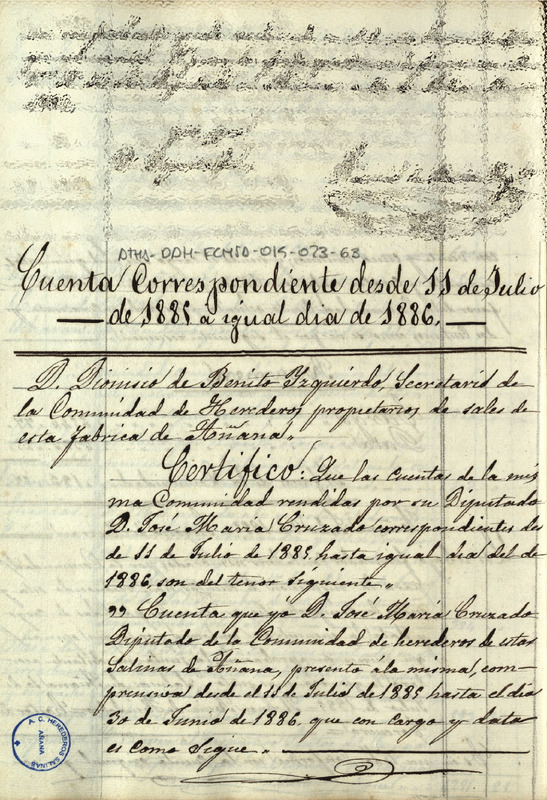 ATHA-DAH-FCMSD-015-023-63
Cuenta Correspondiente desde 11 de Julio
de 1885 a igual dia de 1886.
D. Dionisio de Benito Izquierdo, Secretario de
la Comunidad de Herederos propietarios de sales de
esta fabrica de Añana,,
Certifico: Que las cuentas de la mis
ma Comunidad rendidas por su Diputado
D. José Maria Cruzado correspondientes des
de 11 de Julio de 1885, hasta igual dia del de
1886, son del tenor siguiente,,
,, Cuenta que yo D. José Maria Cruzado
Diputado de la Comunidad de herederos de estas
Salinas de Añana, presento á la misma, com-
prensiva desde el 11 de Julio de 1885 hasta el dia
30 de Junio de 1886, que con cargo y data
es como sigue.,
A. C. HEREDEROS SALINAS
AÑANA